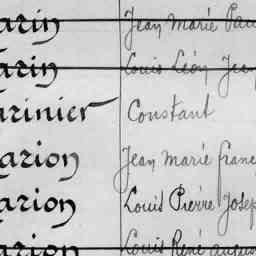 arin Jean Marie Pau
arin Louis Léon Jean
arinier Constant
arion Jean Marie franc
arion Louis Pierre Josep
arion Louis René augus